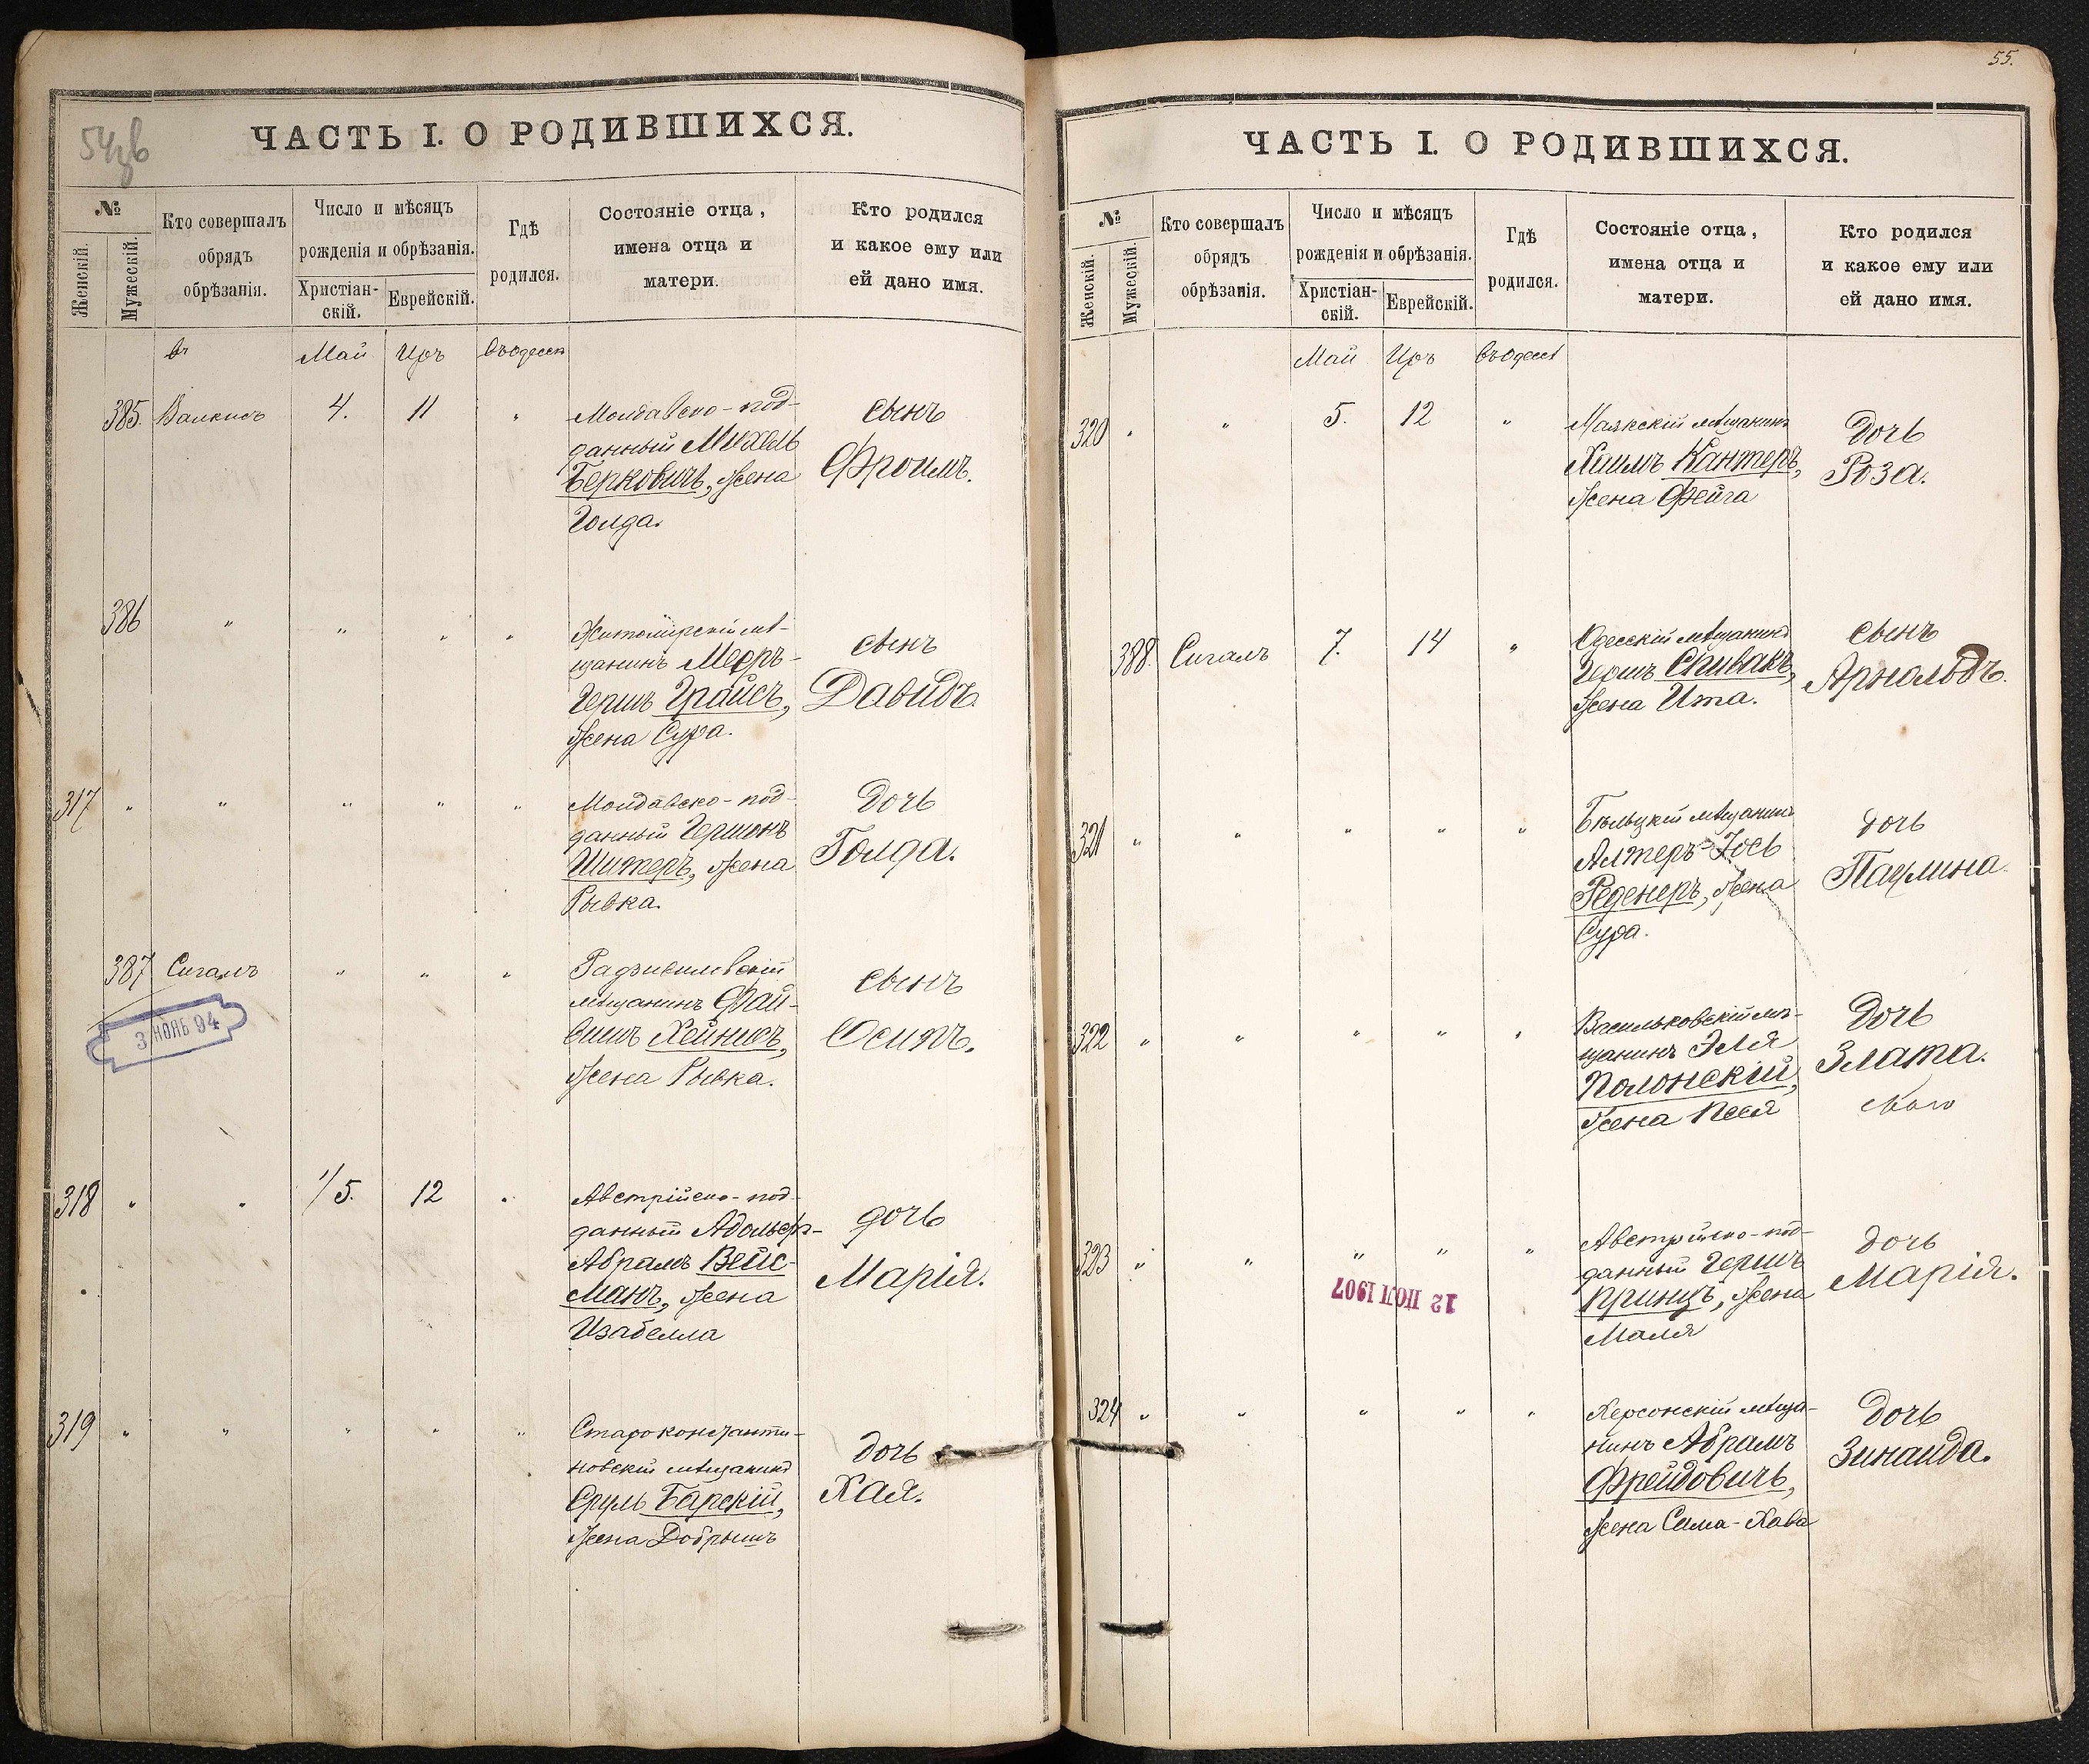 54
ЧАСТЬ I. О РОДИВШИХСЯ.
№
Женскій.
Мужескій.
Кто совершалъ
обрядъ
обрѣзанія.
Число и мѣсяцъ
рожденія и обрѣзанія.
Христіан-
скій.
Еврейскій.
Гдѣ
родился.
Состояніе отца,
имена отца и
матери.
Кто родился
и какое ему или
ей дано имя.
Май Иръ
385. 4. 11 " Молдавско-под-
данный Михель
Берковичъ, жена
Голда.
сынъ
Фроимъ.
386 " " " " Житомірскій мѣ-
щанинъ Меэръ-
Гершъ Грайсъ,
жена Сура.
сынъ
Давидъ.
317 " " " " " Молдавско-под-
данный Гершонъ
Шитеръ, жена
Рывка.
дочь
Голда.
387 Сигалъ " " " Радзивиловскій
мѣщанинъ Фай-
вишъ Хейнисъ,
жена Рывка.
сынъ
Осипъ.
3 НОЯБ 94
318 " " 1/5. 12 " Австрійско-под-
данный Адольфъ-
Абрамъ Вейс-
манъ, жена
Изабелла
дочь
Марія.
319 " " " " " Староконстанти-
новскій мѣщанинъ
Сруль Барскій,
жена Добрышъ
дочь
Хая.
55.
ЧАСТЬ I. О РОДИВШИХСЯ.
№
Женскій.
Мужескій.
Кто совершалъ
обрядъ
обрѣзанія.
Число и мѣсяцъ
рожденія и обрѣзанія.
Христіан-
скій.
Еврейскій.
Гдѣ
родился.
Состояніе отца,
имена отца и
матери.
Кто родился
и какое ему или
ей дано имя.
Май Иръ
320 " " 5. 12 " Маякскій мѣщанинъ
Хаимъ Кантеръ,
жена Фейга
дочь
Роза.
388. Сигалъ 7. 14 " Одесскій мѣщанинъ
Гершъ Спивакъ,
жена Ита.
сынъ
Арнольдъ.
321 " " " " " Бѣльцкій мѣщанинъ
Алтеръ-Іось
Феденеръ, жена
Сура.
дочь
Паулина.
322 " " " " " Васильковскій мѣ-
щанинъ Эля
Полонскій,
жена Песя
дочь
Злата.
323 " " " " " Австрійско-под-
данный Гершъ
Принцъ, жена
Маля
дочь
Марія.
12 ІЮЛ 1907
324 " " " " " Херсонскій мѣща-
нинъ Абрамъ
Фрейдовичъ,
жена Сима-Хава
дочь
Зинаида.